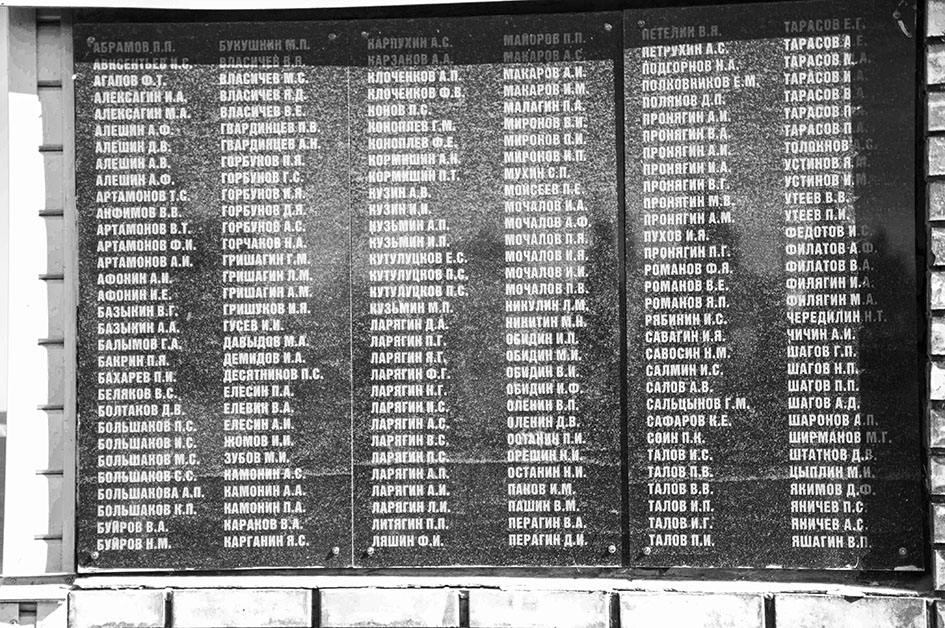 АБРАМОВ П.П.
АВКСЕНТЬЕВ И.С.
АГАПОВ Ф.Т.
АЛЕКСАГИН И.А.
АЛЕКСАГИН М.А.
АЛЕШИН А.Ф.
АЛЕШИН Д.В.
АЛЕШИН А.В.
АЛЕШИН А.Ф.
АРТАМОНОВ Т.С.
АНФИМОВ В.В.
АРТАМОНОВ В.Т.
АРТАМОНОВ Ф.И.
АРТАМОНОВ А.И.
АФОНИН А.И.
АФОНИН И.Е.
БАЗЫКИН В.Г.
БАЗЫКИН А.А.
БАЛЫМОВ Г.А.
БАКРИН П.Я.
БАХАРЕВ П.И.
БЕЛЯКОВ В.С.
БОЛТАКОВ Д.В.
БОЛЬШАКОВ П.С.
БОЛЬШАКОВ И.С.
БОЛЬШАКОВ М.С.
БОЛЬШАКОВ С.С.
БОЛЬШАКОВА А.П.
БОЛЬШАКОВ К.П.
БУЙРОВ В.А.
БУЙРОВ Н.М.
БУКУШКИН М.П.
ВЛАСИЧЕВ В.Я.
ВЛАСИЧЕВ М.С.
ВЛАСИЧЕВ Я.Д.
ВЛАСИЧЕВ В.Е.
ГВАРДИНЦЕВ П.В.
ГВАРДИНЦЕВ А.Н.
ГОРБУНОВ П.Я.
ГОРБУНОВ Г.С.
ГОРБУНОВ И.Я.
ГОРБУНОВ Д.Я.
ГОРБУНОВ А.С.
ГОРЧАКОВ Н.А.
ГРИШАГИН Г.М.
ГРИШАГИН Л.М.
ГРИШАГИН А.М.
ГРИШУКОВ И.Я.
ГУСЕВ И.И.
ДАВЫДОВ М.А.
ДЕМИДОВ И.А.
ДЕСЯТНИКОВ П.С.
ЕЛЕСИН П.А.
ЕЛЕВИЯ В.А.
ЕЛЕСИН А.И.
ЖОМОВ И.И.
ЗУБОВ М.И.
КАМОНИН А.С.
КАМОНИН А.А.
КАМОНИН П.А.
КАРАКОВ В.А.
КАРГАНИН Я.С.
КАРПУХИН А.С.
КАРЗАКОВ А.А.
КЛОЧЕНКОВ А.П.
КЛОЧЕНКОВ Ф.В.
КОНОВ П.С.
КОНОПЛЕВ Г.М.
КОНОПЛЕВ Ф.Е.
КОРМИШИН А.Н.
КОРМИШИН П.Т.
КУЗИН А.В.
КУЗИН И.И.
КУЗЬМИН А.П.
КУЗЬМИН И.П.
КУТУЛУЦКОВ Е.С.
КУТУЛУЦКОВ П.С.
КУТУЛУЦКОВ П.С.
КУЗЬМИН М.П.
ЛАРЯГИН Д.А.
ЛАРЯГИН П.Г.
ЛАРЯГИН Я.Г.
ЛАРЯГИН Ф.Г.
ЛАРЯГИН Н.Г.
ЛАРЯГИН И.С.
ЛАРЯГИН А.С.
ЛАРЯГИН В.С.
ЛАРЯГИН П.С.
ЛАРЯГИН А.П.
ЛАРЯГИН А.И.
ЛАРЯГИН Л.И.
ЛИТЯГИН П.П.
ЛЯШИН Ф.И.
МАЙОРОВ П.П.
МАКАРОВ А.С.
МАКАРОВ А.И.
МАКАРОВ И.М.
МАЛАГИН П.А.
МИРОНОВ В.И.
МИРОНОВ П.И.
МИРОНОВ И.П.
МУХИН С.П.
МОЙСЕЕВ П.Е.
МОЧАЛОВ И.А.
МОЧАЛОВ А.Ф.
МОЧАЛОВ П.Я.
МОЧАЛОВ И.Я.
МОЧАЛОВ И.И.
МОЧАЛОВ П.В.
НИКУЛИН Л.М.
НИКИТИН М.Н.
ОБИДИН И.П.
ОБИДИН М.И.
ОБИДИН В.И.
ОБИДИН И.Ф.
ОЛЕНИН В.П.
ОЛЕНИН Д.В.
ОСТАНИН П.И.
ОРЕШИН К.И.
ОСТАНИН Н.И.
ПАКОВ И.М.
ПАШИН В.М.
ПЕРАГИН В.А.
ПЕРАГИН Д.И.
ПЕТЕЛИН В.Я.
ПЕТРУХИН А.С.
ПОДГОРНОВ Н.А.
ПОЛКОВНИКОВ Е.М.
ПОЛЯКОВ Д.П.
ПРОНЯГИН А.И.
ПРОНЯГИН В.А.
ПРОНЯГИН А.И.
ПРОНЯГИН И.А.
ПРОНЯГИН В.Г.
ПРОНЯГИН М.В.
ПРОНЯГИН А.М.
ПУХОВ И.Я.
ПРОНЯГИН П.Г.
РОМАНОВ Ф.Я.
РОМАНОВ В.Е.
РОМАНОВ Я.П.
РЯБИКИН И.С.
САВАГИН И.Я.
САВОСИН Н.М.
САЛМИН И.С.
САЛОВ А.В.
САЛЬЦЫНОВ Г.М.
САФАРОВ К.Е.
СОИН П.К.
ТАЛОВ И.С.
ТАЛОВ П.В.
ТАЛОВ В.В.
ТАЛОВ И.П.
ТАЛОВ И.Г.
ТАЛОВ П.И.
ТАРАСОВ Е.Г.
ТАРАСОВ А.Е.
ТАРАСОВ М.А.
ТАРАСОВ И.А.
ТАРАСОВ В.А.
ТАРАСОВ
ТАРАСОВ П.А.
ТОЛОКНОВ А.С.
УСТИНОВ Я.М.
УСТИНОВ И.М.
УТЕЕВ В.В.
УТЕЕВ П.И.
ФЕДОТОВ И.С.
ФИЛАТОВ А.Ф.
ФИЛАТОВ В.А.
ФИЛЯГИН И.А.
ФИЛЯГИН М.А.
ЧЕРЕДИЛИН Н.Т.
ЧИЧИН А.И.
ШАГОВ Г.П.
ШАГОВ Н.П.
ШАГОВ П.П.
ШАГОВ А.Д.
ШАРОНОВ А.П.
ШИРМАНОВ М.Г.
ШТАТНОВ Д.В.
ЦЫПЛИН М.И.
ЯКИМОВ Д.Ф.
ЯНИЧЕВ П.С.
ЯНИЧЕВ А.С.
ЯШАГИН В.П.